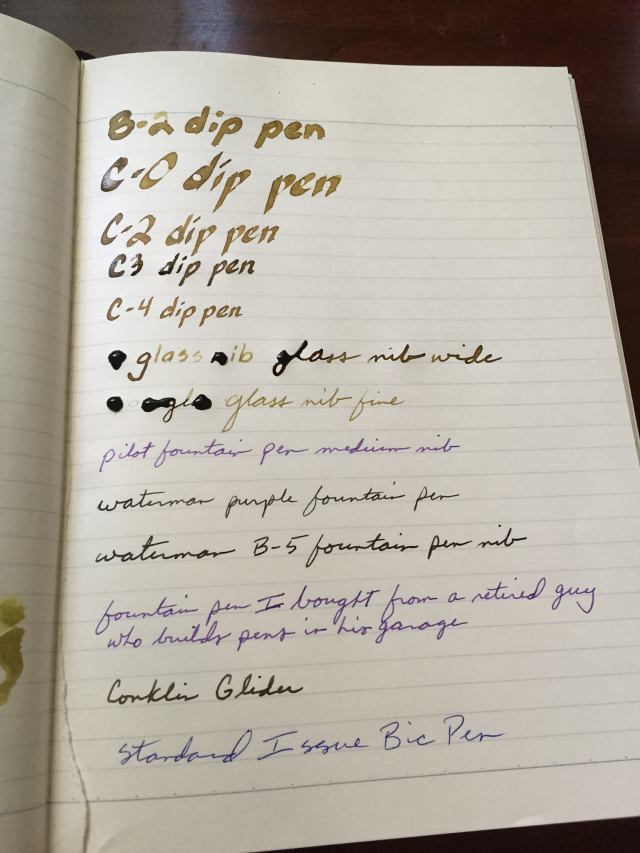 B-2 dip pen
C-0 dip pen
C-2 dip pen
C3 dip pen
C-4 dip pen
glass nib glass nib wide
gl glass nib fine
pilot fountain pen medium nib
waterman purple fountain pen
waterman B-5 fountain pen nib
fountain pen I bought from a retired guy
who builds pens in his garage
Conklin Glider
Standard Issue Bic Pen